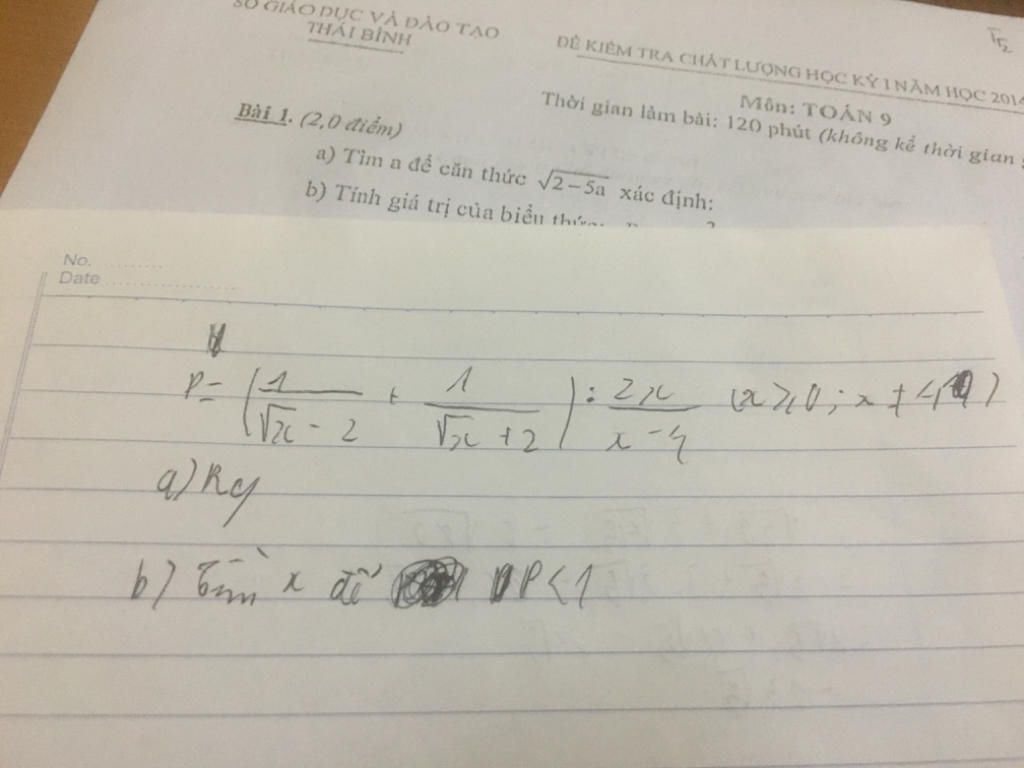 SỞ GIÁO DỤC VÀ ĐÀO TẠO
THÁI BÌNH
ĐỀ KIỂM TRA CHẤT LƯỢNG HỌC KỲ I NĂM HỌC 2014
Môn: TOÁN 9
Thời gian làm bài: 120 phút (không kể thời gian
Bài 1. (2,0 điểm)
a) Tìm a để căn thức √(2-5a) xác định:
b) Tính giá trị của biểu thức:
No. ..........
Date ....................
P = (1/(√x - 2) + 1/(√x + 2)) : 2x/(x - 4) (x ≥ 0; x ≠ 4)
a) Rg
b) Tìm x để P < 1